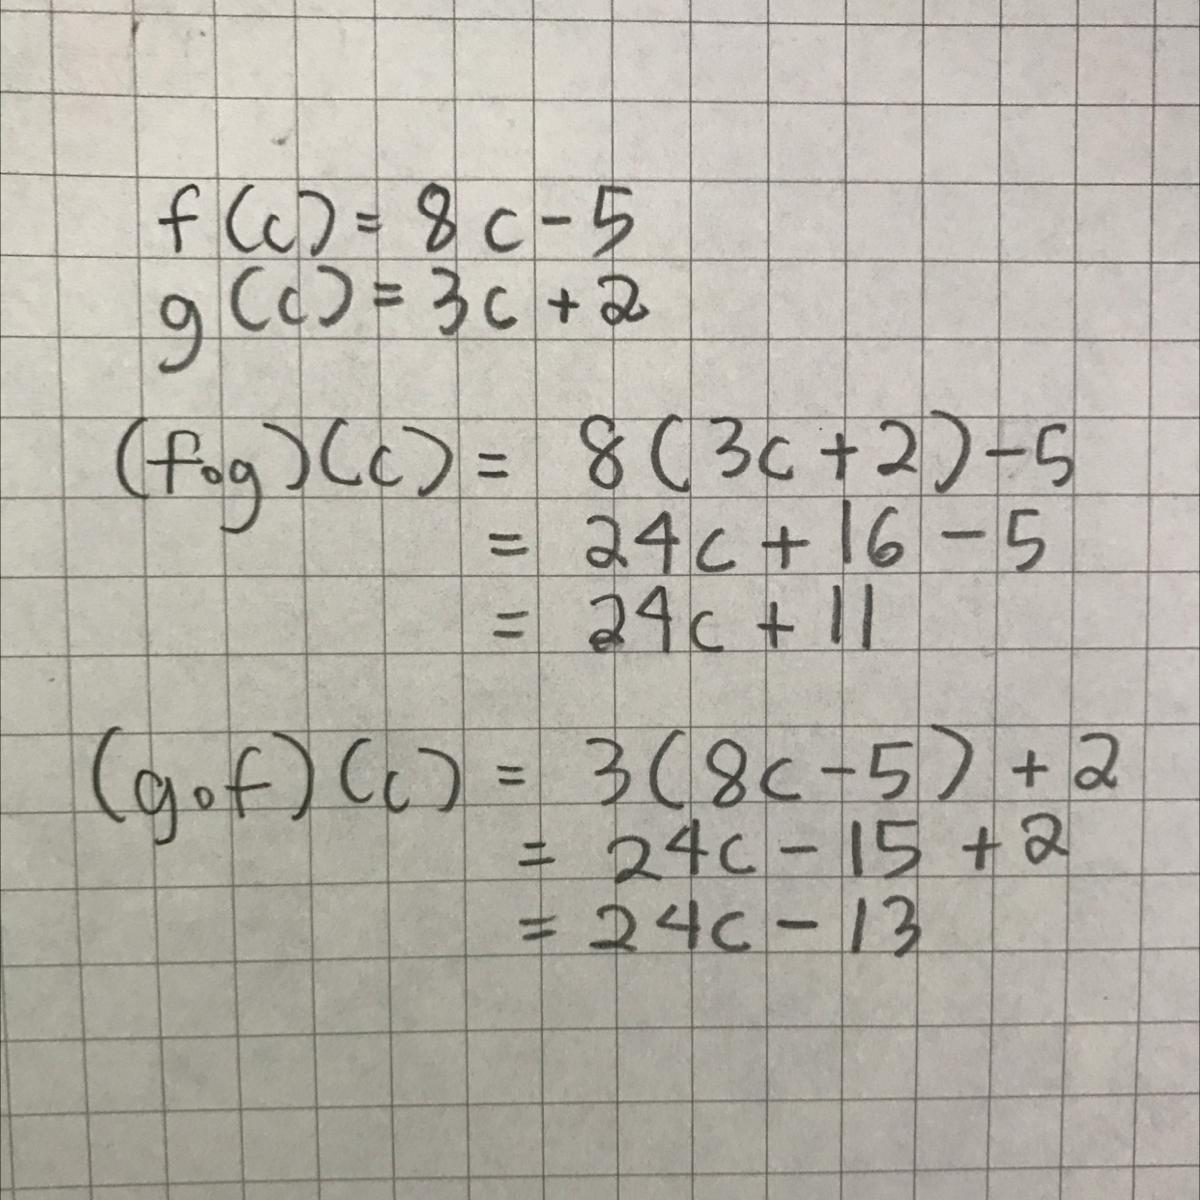 f(c) = 8c - 5
g(c) = 3c + 2
(f∘g)(c) = 8(3c + 2) - 5
= 24c + 16 - 5
= 24c + 11
(g∘f)(c) = 3(8c - 5) + 2
= 24c - 15 + 2
= 24c - 13